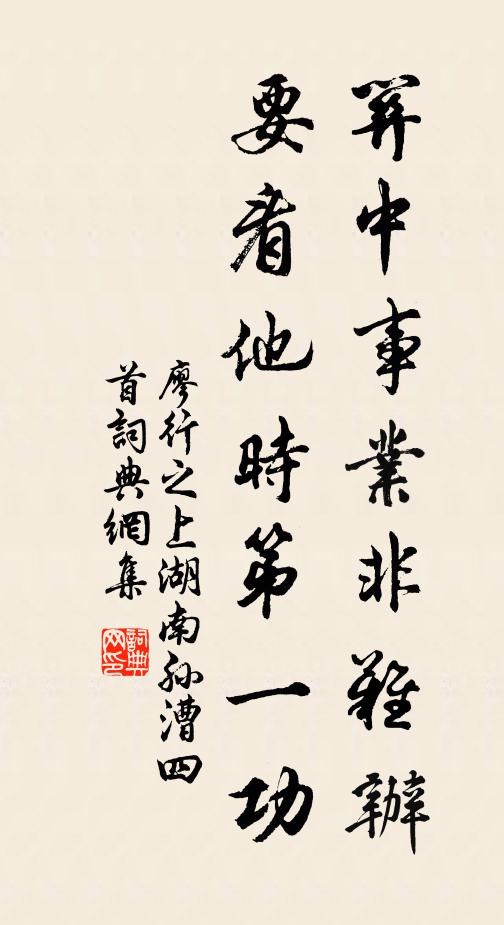 筭中事業非難辦
要看他時第一功
廖行之上湖南孫漕四
首詞典網集
詞典
网印